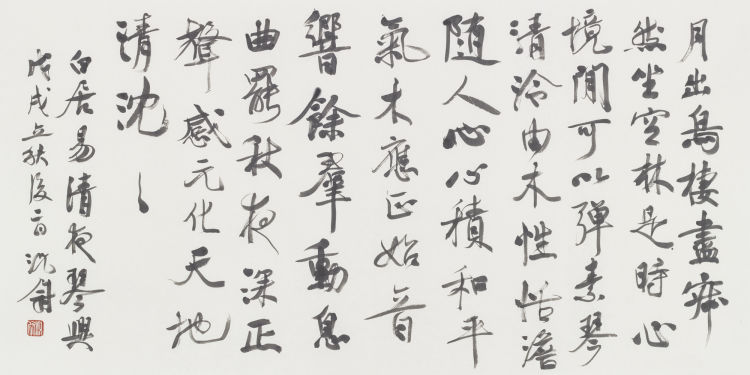 月出鳥棲盡寂
然坐空林是時心
境閒可以彈素琴
清泠由木性恬澹
随人心心積和平
氣木應正始音
響餘羣動息
曲罷秋夜深正
聲感元化天地
清沈〻
白居易清夜琴興
戊戌立秋後二日沈